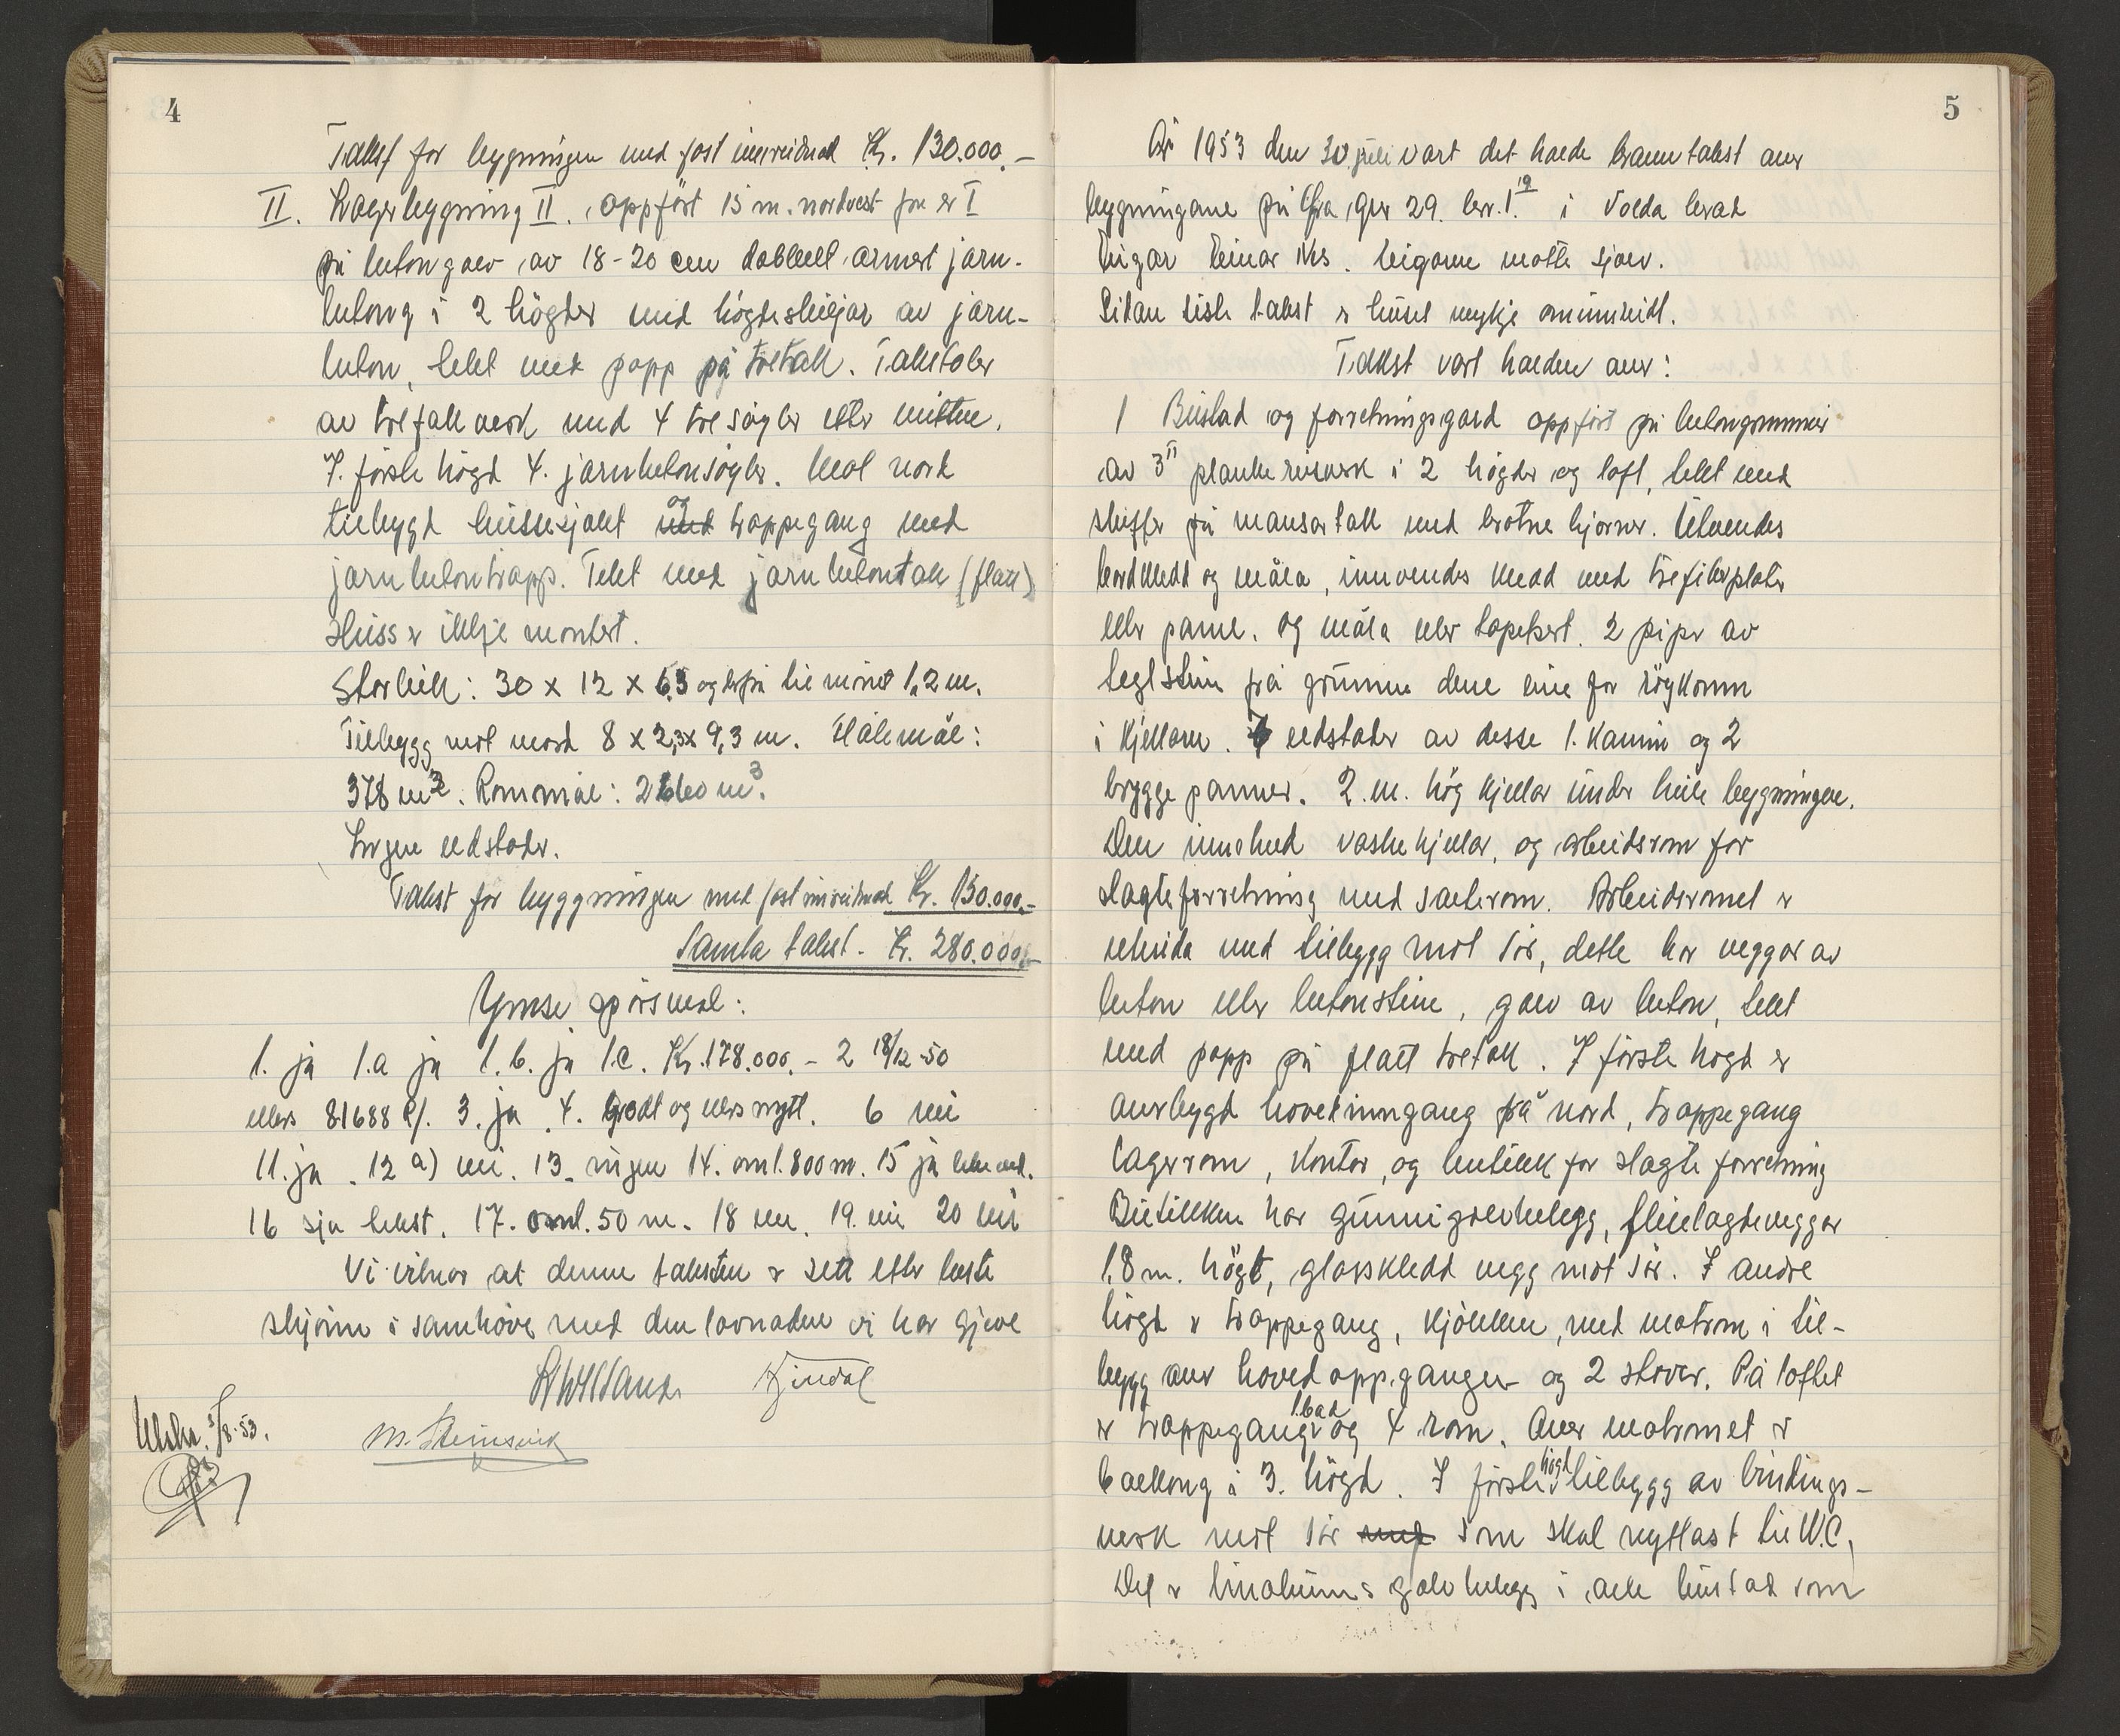 4
Takst for bygningen med fast innreidnad Kr. 130.000.-
II. Lagerbygning II. oppført 15 m. nordvest for nr I
på betongolv av 18-20 cm dobbelt armert jarn-
betong i 2 högder med högdeskiljar av jarn-
beton, tekt med papp på tretak. Takstoler
av trefallverk med 4 tre søyler etter midten.
I. förste högd 4. jarnbetonsöyler. Mot nord
tilbygd heissesjakt med og trappegang med
jarnbetontrapp. Tekt med jarnbetontak (flatt)
Heiss er ikkje montert.
Storleik: 30 x 12 x 6,3 og derpå til mönet 1,2 m.
Tilbygg mot nord 8 x 2,3 x 9,3 m. Flatemål:
378 m2. Rommål: m3.
Ingen eldstader.
Takst for byggningen med fast innreidnad Kr. 150.000.-
Samla takst. Kr. 280.000.-
Ymse spörsmal:
1. ja 1.a ja 1.b. ja 1.c. Kr. 178.000.- 2 18/12-50
ellers 81688 3. ja. 4. Godt og nytt. 6 nei
11. ja. 12 a) nei. 13. ingen 14. oml. 800 m. 15 ja
16 sjå takst. 17. oml. 50 m. 18 nei. 19. nei 20 nei
Vi vitnar at denne taksten er sett etter beste
skjönn i samhöve med den lovnaden vi har gjeve
M. Steinsvik
5
År 1953 den 30 juli vart det halde branntakst over
bygningane på gnr 29. bnr. 1.19 i Volda herad
Eigar Einar Nes. Eigaren møtte sjølv.
Sidan siste takst er huset mykje ominnreidt.
Takst vart halden over:
1 Bustad og forretningsgard oppfört på betongmur
av 3" planke reisverk i 2 högder og loft, tekt med
skiffer på mansartak med brotne hjørner. Utvendes
bordkledd og måla, innvendes kledd med trefiberplater
eller panel. og måla eller tapetsert. 2 piper av
teglstein frå grunnen den eine for røykomn
i kjellaren. 7 eldstader av desse 1. kamin og 2
bryggepanner. 2. m. høg kjellar under heile bygningen.
Den inneheld vaskekjellar, og arbeidsrom for
slagteforretning med salterom. Arbeidsromet er
utvida med tilbygg mot sör, dette har veggar av
beton eller betonstein, golv av beton, tekt
med papp på flatt tretak. I förste högd er
overbygd hovedinngang frå nord, trappegang
lagerrom, kontor, og butikk for slagteforretning
Butikken har gummigolvbelegg, flislagdeveggar
1,8 m. högt, glasskledd vegg mot sör. I andre
högd er trappegang, kjökken, med matrom i til-
bygg over hovedoppgangen og 2 stover. På loftet
er trappegang 1. bad og 4 rom. Over matromet er
balkong i 3. högd. I förste högd tilbygg av bindings-
verk mot sör som skal nyttast til W.C.
Det er linoleums golvbelegg i alle bustad rom